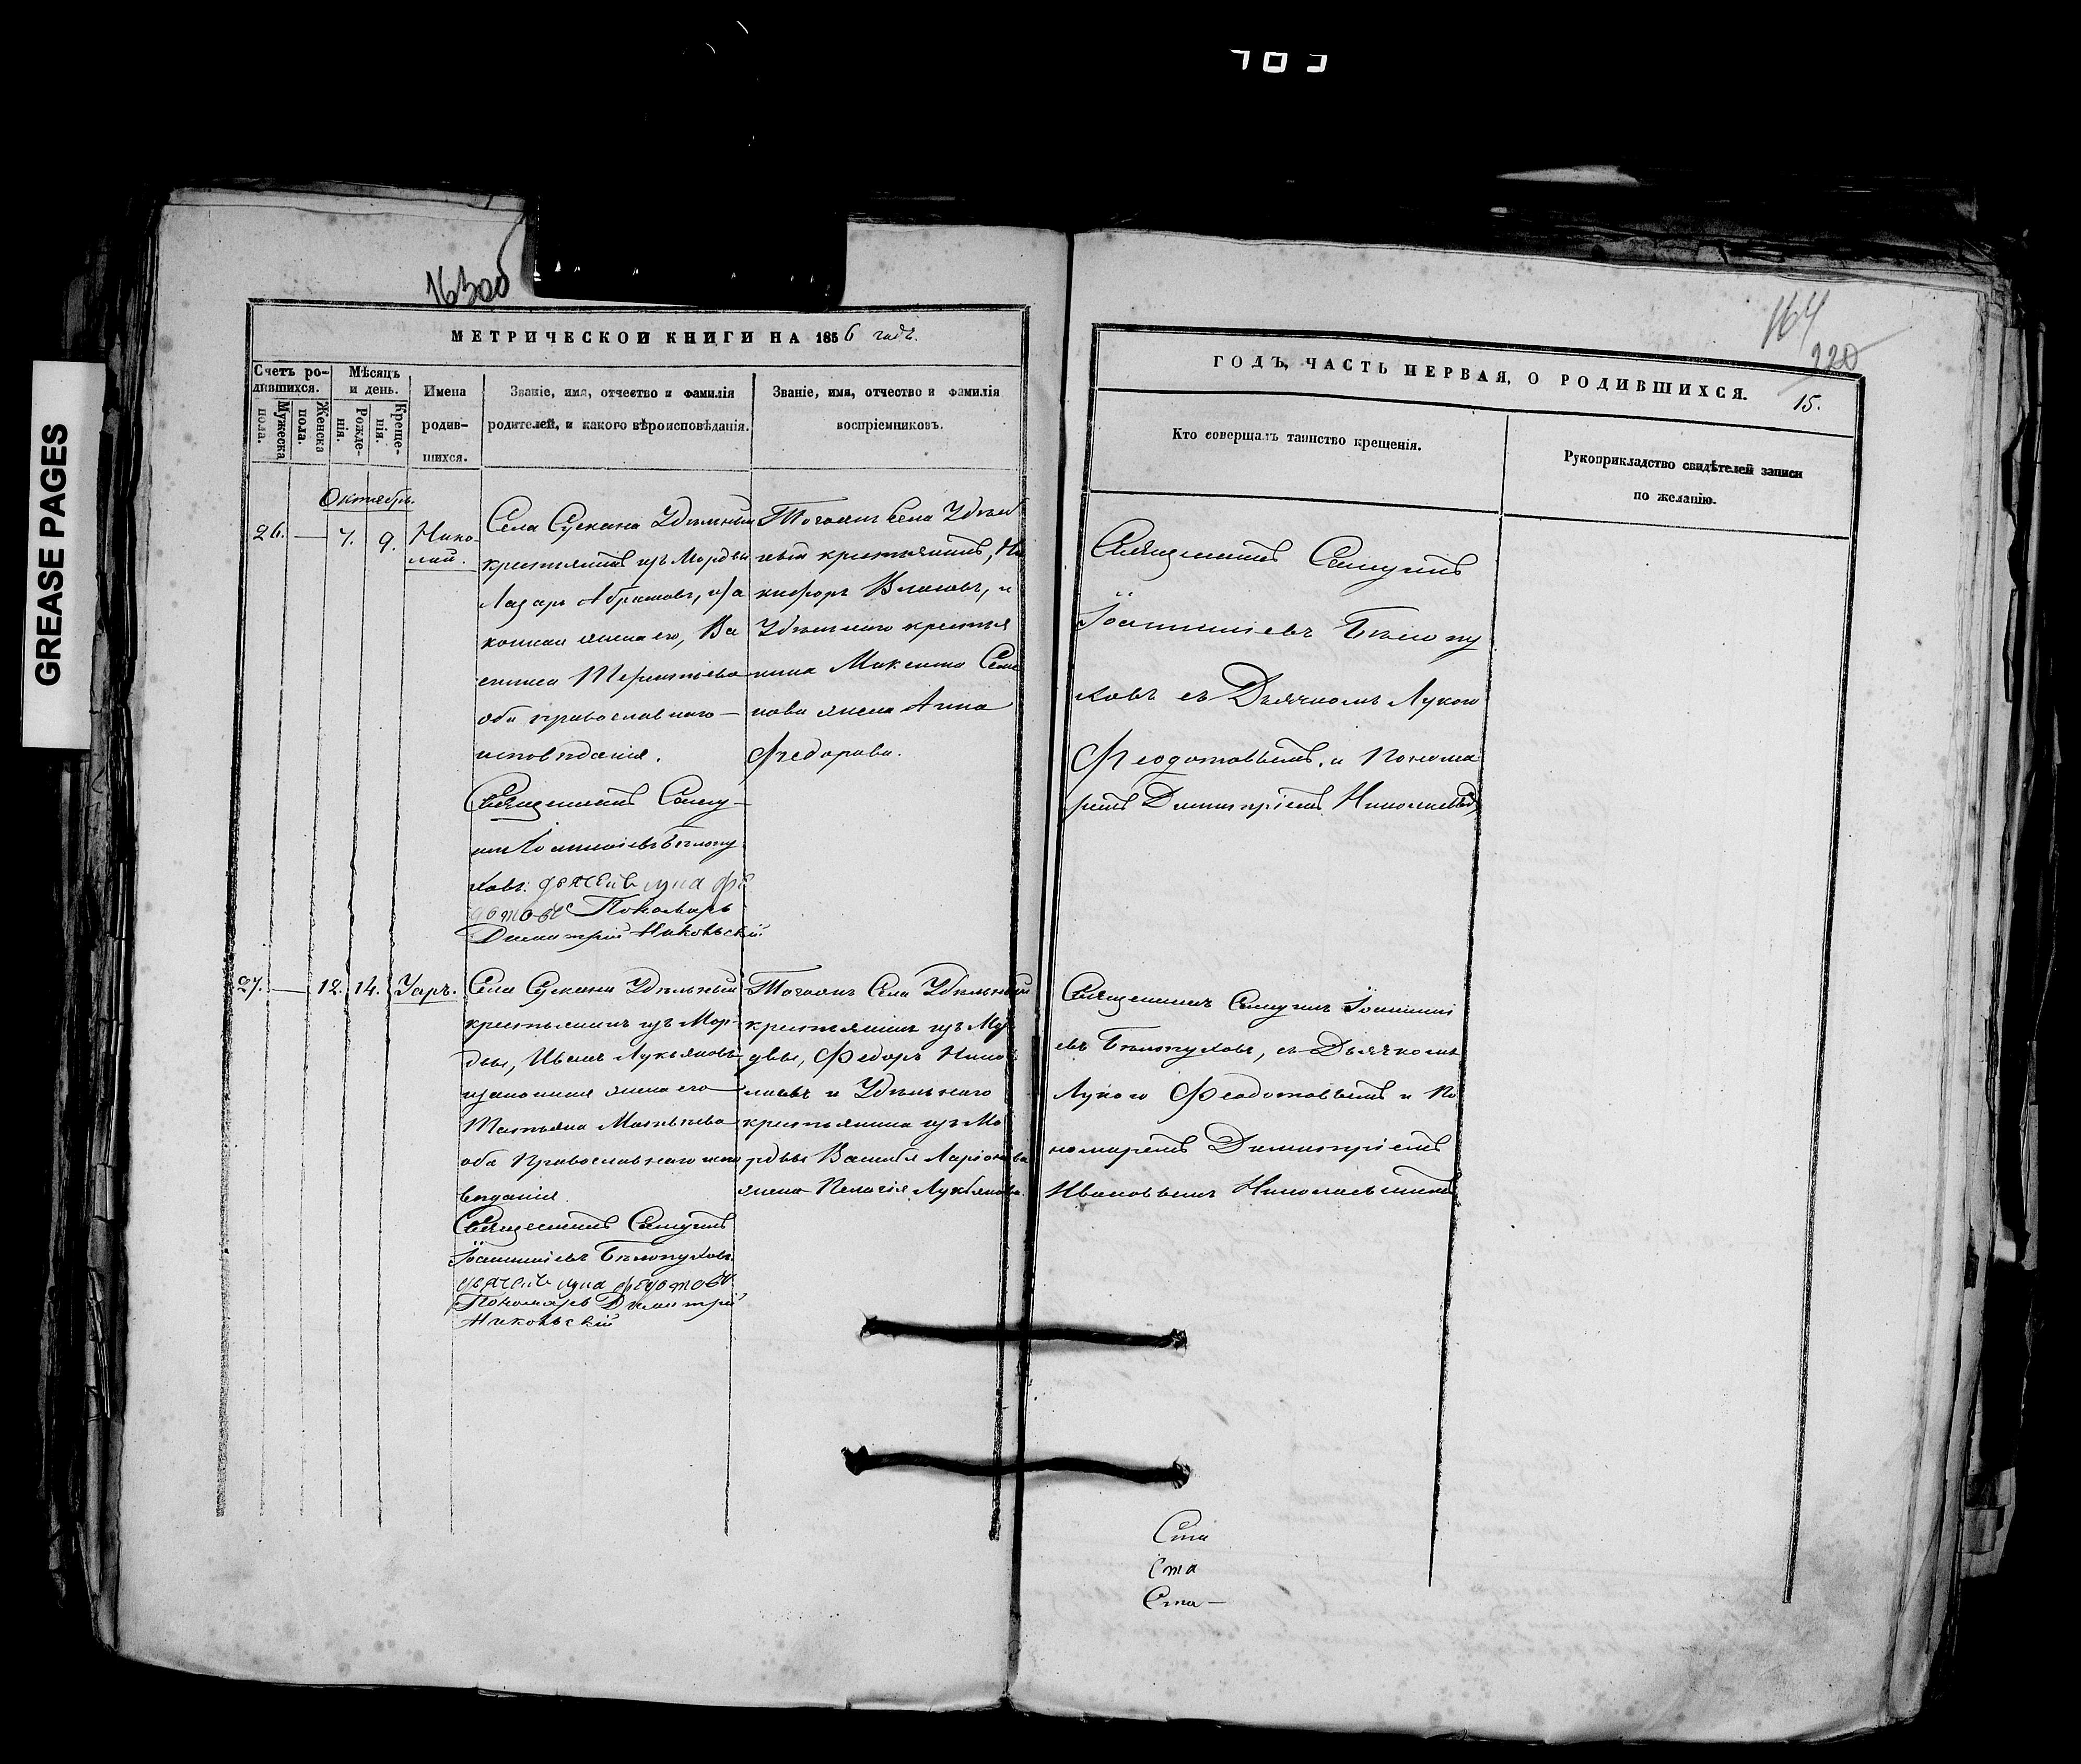 GREASE PAGES
163об
МЕТРИЧЕСКОЙ КНИГИ НА 1856 годъ.
Счетъ ро-
дившихся.
Мужеска
пола.
Женска
пола.
Мѣсяцъ
и день.
Рожде-
нія.
Креще-
нія.
Имена
родив-
шихся.
Званіе, имя, отчество и фамилія
родителей, и какого вѣроисповѣданія.
Званіе, имя, отчество и фамилія
воспріемниковъ.
Октябрь.
26. — 7. 9. Нико-
лай.
Села Сускана Удѣльный
крестьянинъ изъ Мордвы
Лазарь Абрамовъ, и за
конная жена его, Ва
силиса Терентьева
оба православнаго
исповѣданія.
Священникъ Саму-
илъ Іоанніевъ Бѣлопу
ховъ: дьячекъ лука фе
дотовъ Пономарь
Димитрій Никольскій
Тогожъ Села Удѣль
ный крестьянинъ, Ни
кифоръ Власовъ, и
Удѣльнаго крестья
нина Максима Семе
нова жена Анна
Федорова.
27. — 12. 14. Уаръ.
Села Сускана Удѣльный
крестьянинъ изъ Мор-
двы, Иванъ Лукьяновъ
изаконная жена его
Татьяна Матвѣева
оба Православнаго испо
вѣданія.
Священникъ Самуилъ
Іоанніевъ Бѣлопуховъ
дьячекъ лука федотовъ
Пономарь Димитрій
Никольскій
Тогожъ Села Удѣльный
крестьянинъ изъ Мор
двы, Федоръ Нико
лаевъ и Удѣльнаго
крестьянина изъ Мо
рдвы Василья Ларіонова
жена Пелагія Лукьянова.
164
220
ГОДЪ, ЧАСТЬ ПЕРВАЯ, О РОДИВШИХСЯ.
15.
Кто совершалъ таинство крещенія.
Рукоприкладство свидѣтелей записи
по желанію.
Священникъ Самуилъ
Іоанніевъ Бѣлопу
ховъ съ Дьячкомъ Лукою
Феодотовымъ, и Понома
ремъ Димитріемъ
Священникъ Самуилъ Іоанні
евъ Бѣлопуховъ, съ Дьячкомъ
Лукою Феодотовымъ и По
номаремъ Димитріемъ
Ивановымъ Никольскимъ
Ста
Ста
Ста—